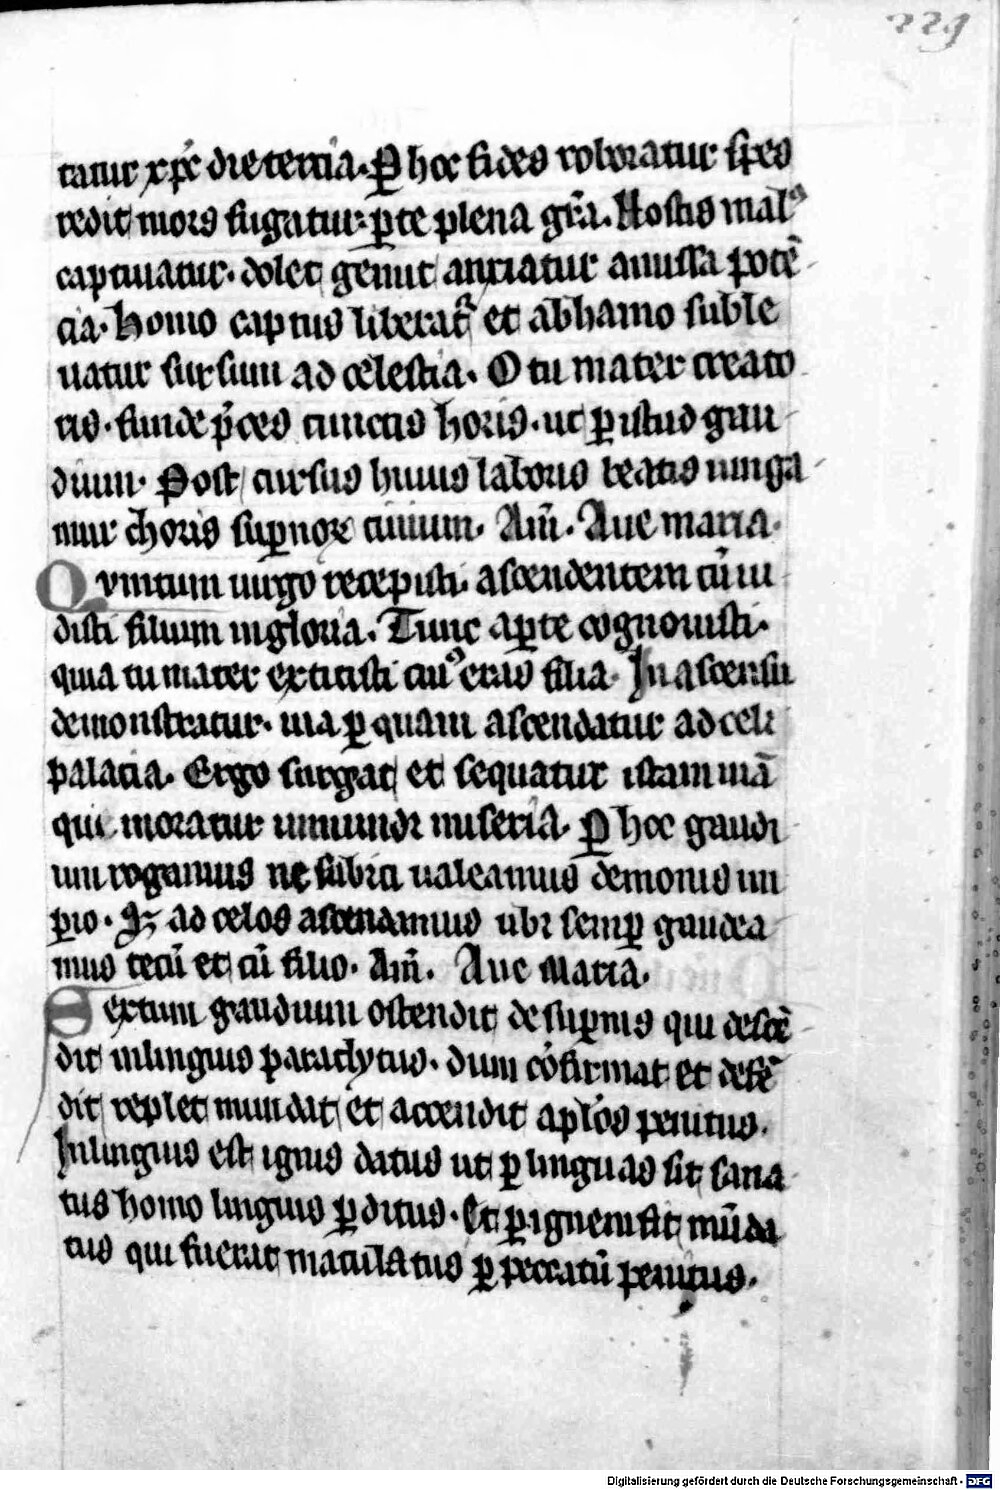 229
tatur xp̄c die tercia. ꝑ hoc fides roboratur spes
redit mors fugatur. ꝑ te plena gr̄a. Hostis malꝰ
captiuatur. dolet gemit anxiatur amissa potē
cia. Homo captus liberat᷑ et abhamo suble
uatur sursum ad celestia. O tu mater creato
ris. funde p̄ces cunctis horis. ut ꝑ istud gau
dium. Post cursus huius laboris beatis iunga
mur choris suꝑnoꝝ ciuium. Am̄. Aue maria.
Quintum uirgo recepisti. ascendentem cū ui
disti filium in gloria. Tunc aꝑte cognouisti.
quia tu mater extitisti cuiꝰ eras filia. In ascensu
demonstratur. uia ꝑ quam ascendatur ad celi
palacia. Ergo surgat et sequatur istam uiā
qui moratur inmundi miseria. ꝑ hoc gaudi
um rogamus ne subici ualeamus demonis im
ꝑio. Sꝫ ad celos ascendamus ubi semꝑ gaudea
mus tecū et cū filio. Am̄. Aue Maria.
Sextum gaudium ostendit de suꝑnis qui descē
dit inlinguis paraclytus. dum cōfirmat et defē
dit replet mundat et accendit apl̄os penitus.
Inlinguis est ignis datus ut ꝑ linguas sit sana
tus homo linguis ꝑditus. Et ꝑ ignem sit mūda
tus qui fuerat maculatus ꝑ peccatū penitus.
Digitalisierung gefördert durch die Deutsche Forschungsgemeinschaft - DFG